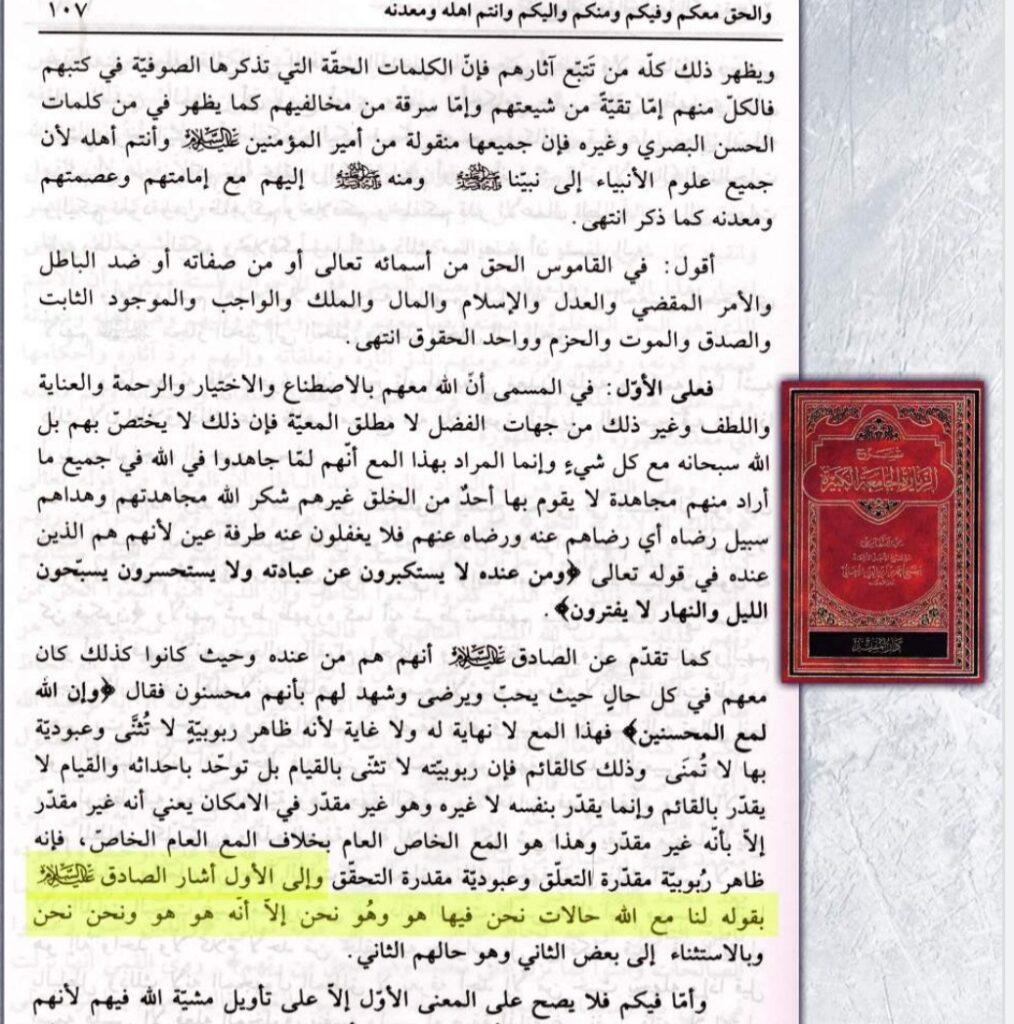 والحق معكم وفيكم ومنكم واليكم وانتم اهله ومعدنه
١٠٧
ويظهر ذلك كلّه من تَتبّع آثارهم فإنّ الكلمات الحقّة التي تذكرها الصوفيّة في كتبهم
فالكلّ منهم إمّا تقيّةً من شيعتهم وإمّا سرقة من مخالفيهم كما يظهر في من كلمات
الحسن البصري وغيره فإن جميعها منقولة من أمير المؤمنين عليه السلام وأنتم أهله لأن
جميع علوم الأنبياء إلى نبيّنا ﷺ ومنه ﷺ إليهم مع إمامتهم وعصمتهم
ومعدنه كما ذكر انتهى.
أقول: في القاموس الحق من أسمائه تعالى أو من صفاته أو ضد الباطل
والأمر المقضي والعدل والإسلام والمال والملك والواجب والموجود الثابت
والصدق والموت والحزم وواحد الحقوق انتهى.
فعلى الأوّل: في المسمى أنّ الله معهم بالاصطناع والاختيار والرحمة والعناية
واللطف وغير ذلك من جهات الفضل لا مطلق المعيّة فإن ذلك لا يختصّ بهم بل
الله سبحانه مع كل شيءٍ وإنما المراد بهذا المع أنّهم لمّا جاهدوا في الله في جميع ما
أراد منهم مجاهدة لا يقوم بها أحدٌ من الخلق غيرهم شكر الله مجاهدتهم وهداهم
سبيل رضاه أي رضاهم عنه ورضاه عنهم فلا يغفلون عنه طرفة عين لأنهم هم الذين
عنده في قوله تعالى ﴿ومن عنده لا يستكبرون عن عبادته ولا يستحسرون يسبّحون
الليل والنهار لا يفترون﴾.
كما تقدّم عن الصادق عليه السلام أنهم هم من عنده وحيث كانوا كذلك كان
معهم في كل حالٍ حيث يحبّ ويرضى وشهد لهم بأنهم محسنون فقال ﴿وإن الله
لمع المحسنين﴾ فهذا المع لا نهاية له ولا غاية لأنه ظاهر ربوبيّةٍ لا تُثنَّى وعبوديّة
بها لا تُمنَى وذلك كالقائم فإن ربوبيّته لا تثنّى بالقيام بل توحّد باحداثه والقيام لا
يقدّر بالقائم وإنما يقدّر بنفسه لا غيره وهو غير مقدّر في الامكان يعني أنه غير مقدّر
إلاّ بأنّه غير مقدّر وهذا هو المع الخاص العام بخلاف المع العام الخاصّ، فإنه
ظاهر رُبوبيّة مقدّرة التعلّق وعبوديّة مقدرة التحقّق وإلى الأول أشار الصادق عليه السلام
بقوله لنا مع الله حالات نحن فيها هو وهُو نحن إلاّ أنّه هو هو ونحن نحن
وبالاستثناء إلى بعض الثاني وهو حالهم الثاني.
وأمّا فيكم فلا يصح على المعنى الأوّل إلاّ على تأويل مشيّة الله فيهم لأنهم
شرح
الزيارة الجامعة الكبيرة